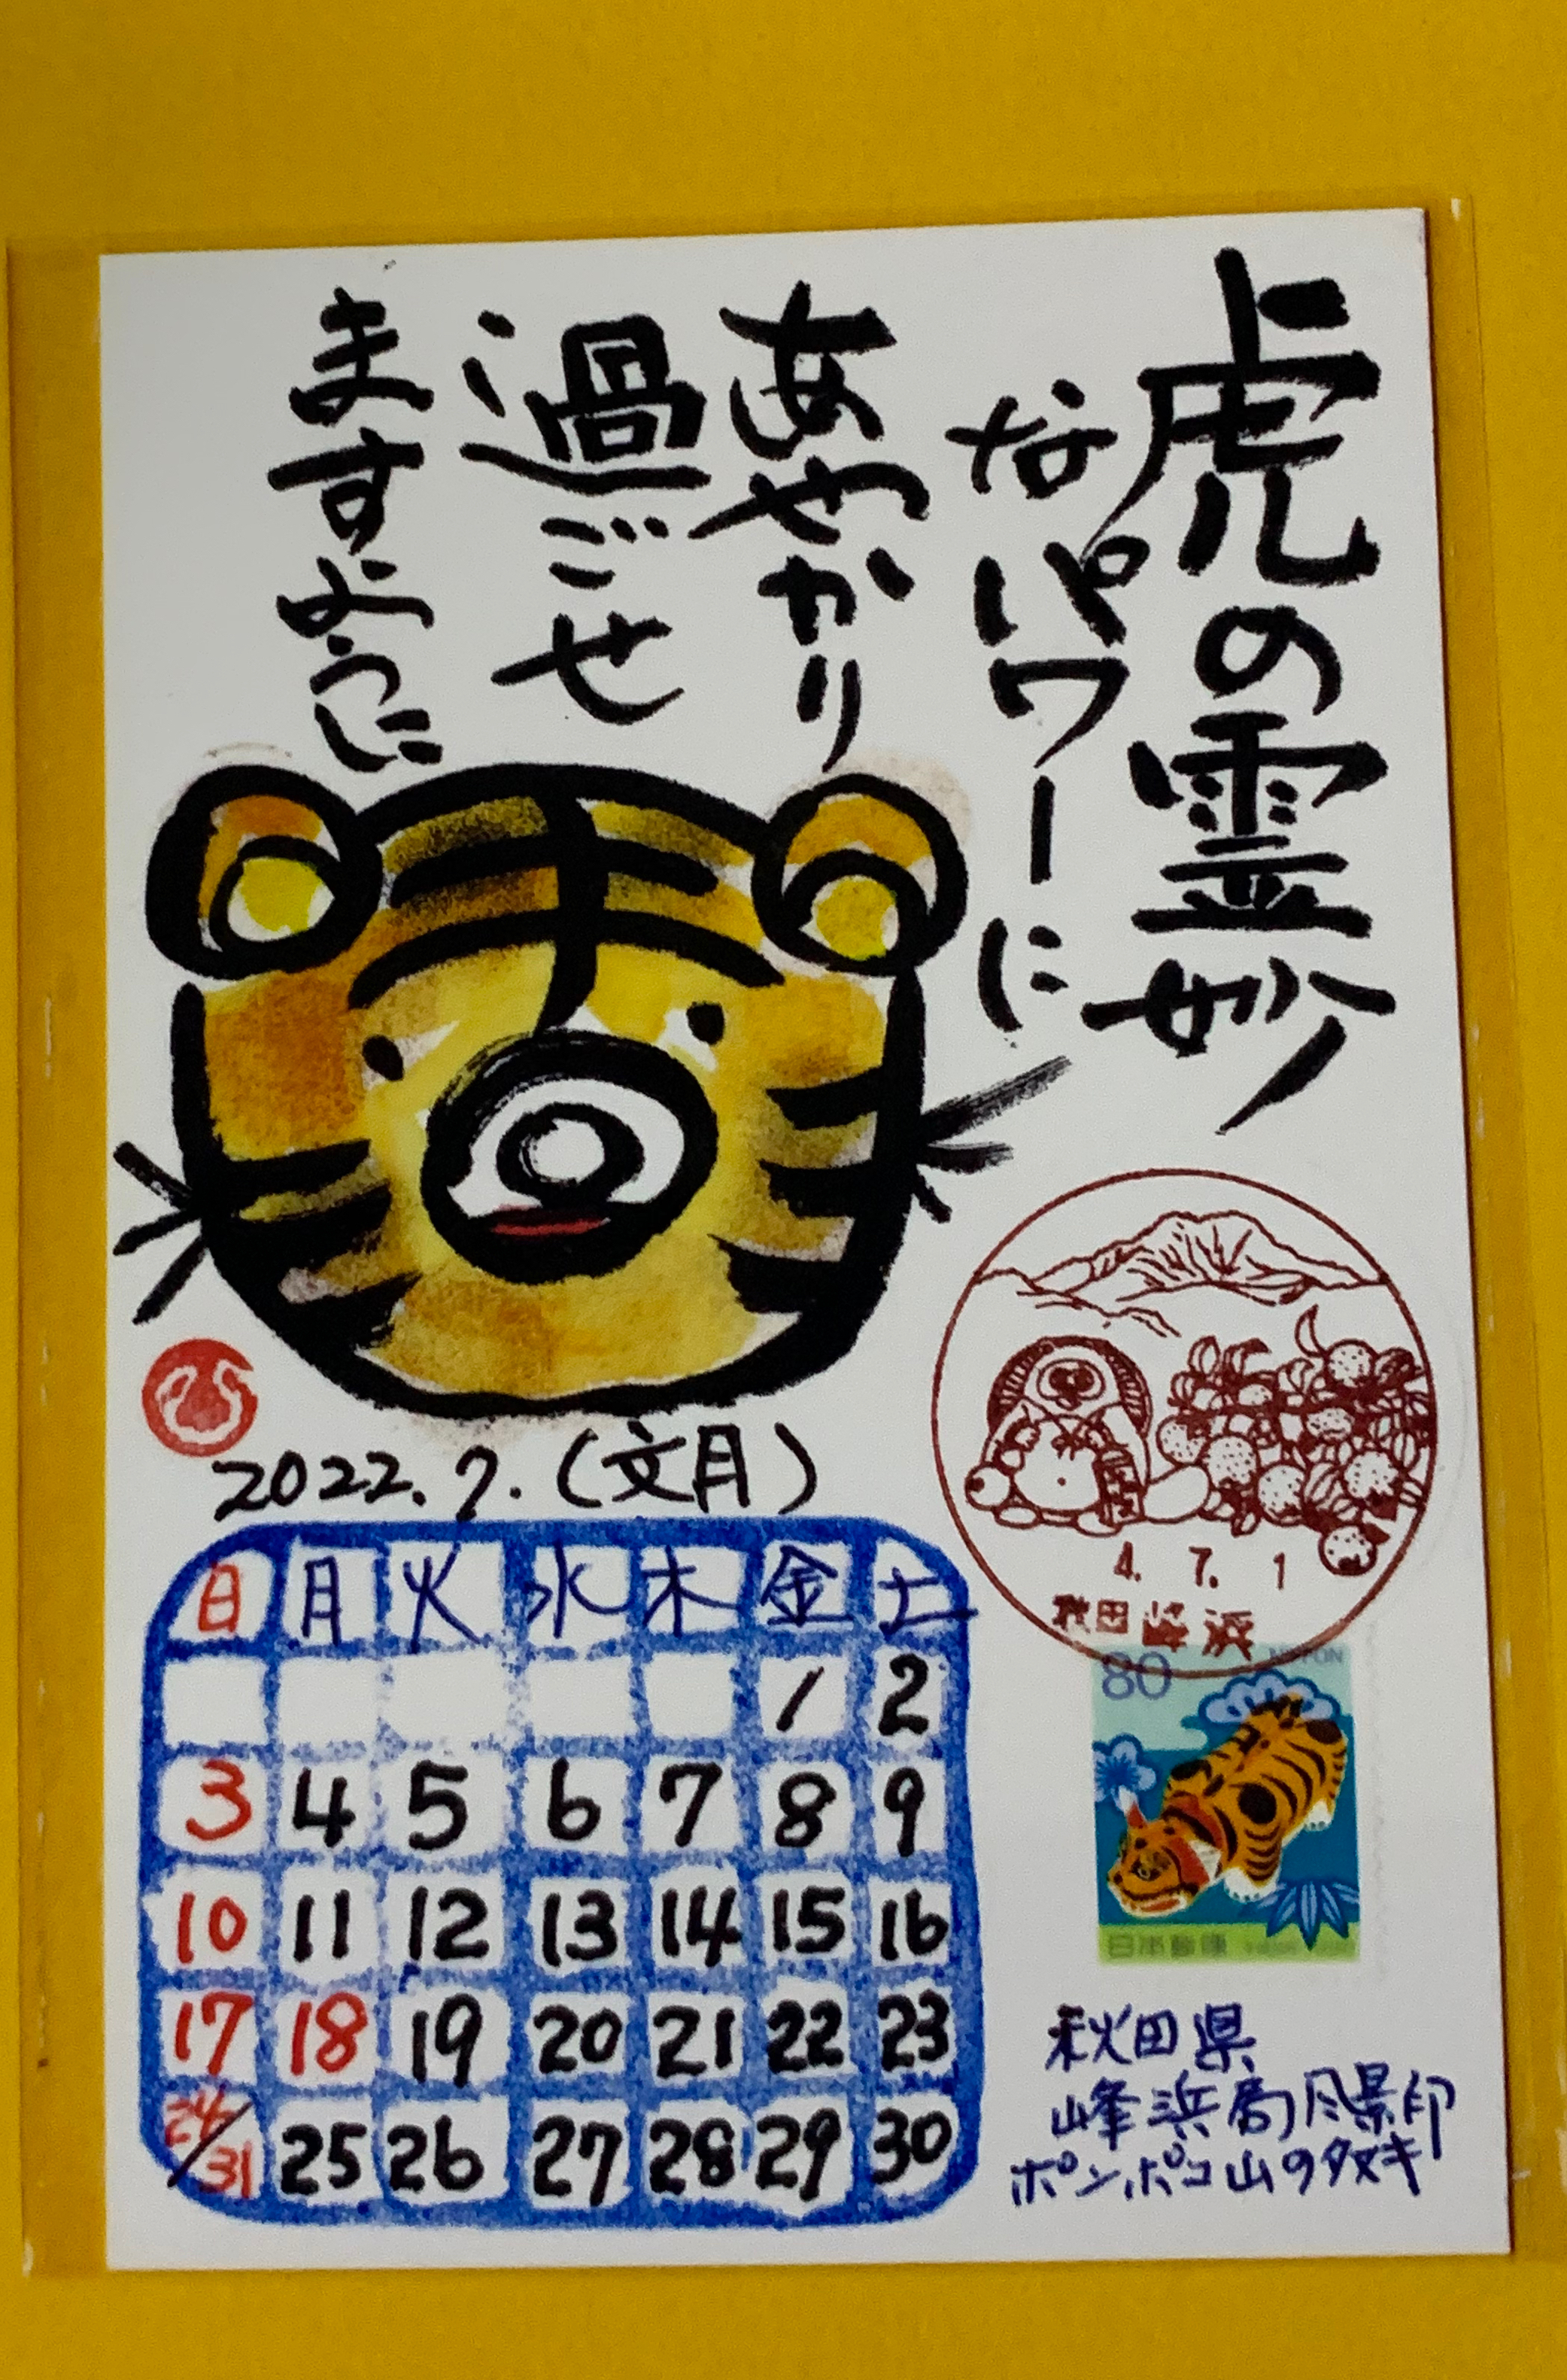 虎の霊妙
なパワーに
あやかり
過ごせ
ますように
2022.7.(文月)
日 月 火 水 木 金 土
1 2
3 4 5 6 7 8 9
10 11 12 13 14 15 16
17 18 19 20 21 22 23
24/31 25 26 27 28 29 30
4. 7. 1
秋田 峰浜
80 NIPPON
日本郵便
秋田県
峰浜局風景印
ポンポコ山のタヌキ